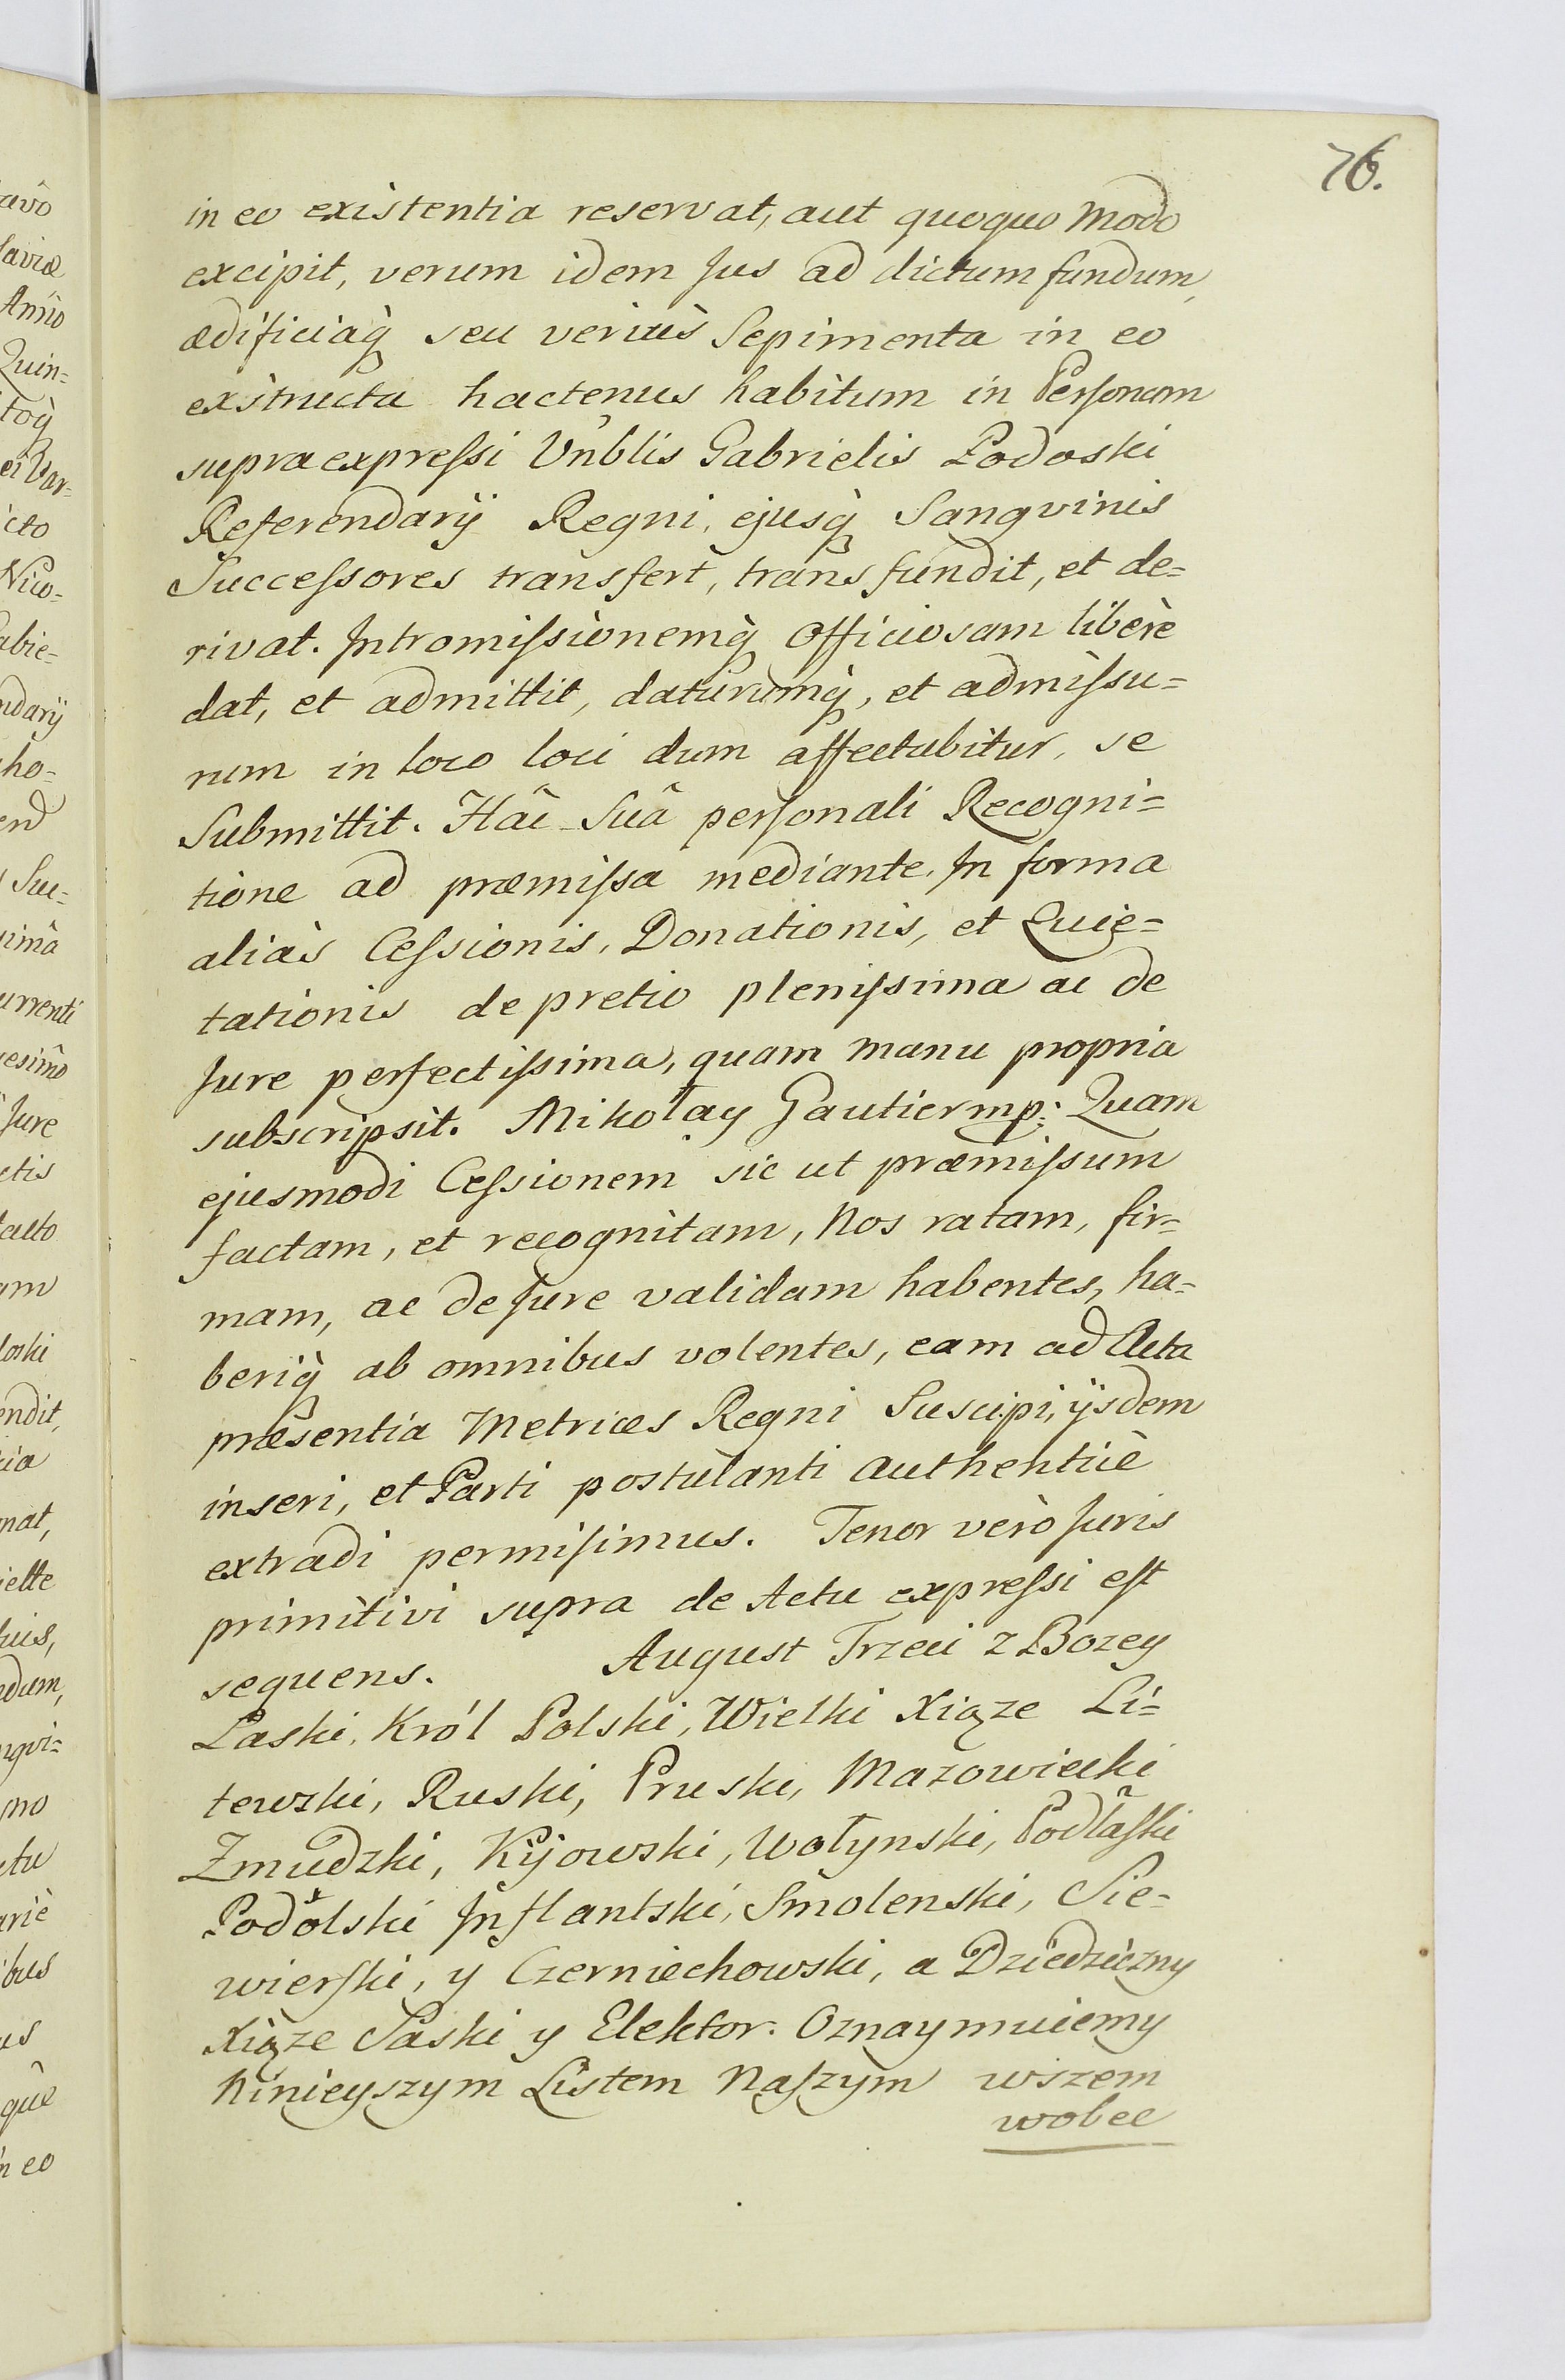 76.
in eo existentia reservat, aut quoquo modo
excipit, verum idem Jus ad dictum fundum,
ædificiaq̀ seu veriùs Sepimenta in eo
exstructa hactenus habitum in Personam
supra expressi Vnblis Gabrielis Podoski
Referendarÿ Regni, ejusq̀ Sangvinis
Successores transfert, transfundit, et de=
rivat. Intromissionemq̀ Officiosam liberè
dat, et admittit, daturumq̀, et admissu=
rum in loco loci dum affectabitur, se
Submittit. Hâc Suâ personali Recogni=
tione ad præmissa mediante. In forma
aliàs Cessionis, Donationis, et Quie=
tationis de pretio plenissima ac de
Jure perfectissima, quam manu propria
subscripsit. Mikołay Gautier mp: Quam
ejusmodi Cessionem sic ut præmissum
factam, et recognitam, Nos ratam, fir=
mam, ac de Jure validam habentes, ha=
beriq̀ ab omnibus volentes, eam ad Acta
præsentia Metrices Regni Suscipi, ijsdem
inseri, et Parti postulanti authenticè
extradi permisimus. Tenor verò Juris
primitivi supra de Actu expressi est
sequens. August Trzeci z Bozey
Łaski, Król Polski, Wielki Xiąze Li=
tewski, Ruski, Pruski, Mazowiecki
Zmudzki, Kijowski, Wołynski, Podlaski
Podolski Inflantski, Smolenski, Sie=
wierski, y Czerniechowski, a Dziedziczny
Xiąze Saski y Elektor. Oznaymuiemy
Ninieyszym Listem Naszym wszem
wobec
avô
saviæ
Anno
Quin=
toq̀
ei Var=
cto
Nico=
abie=
ndarÿ
cho=
end
Suc=
nimâ
urrenti
esimô
Jure
etis
acto
am
doski
endit,
cia
nat,
iette
suis,
ndum,
ngvi=
mo
ctu
ariè
ibus
us
quê
in eo